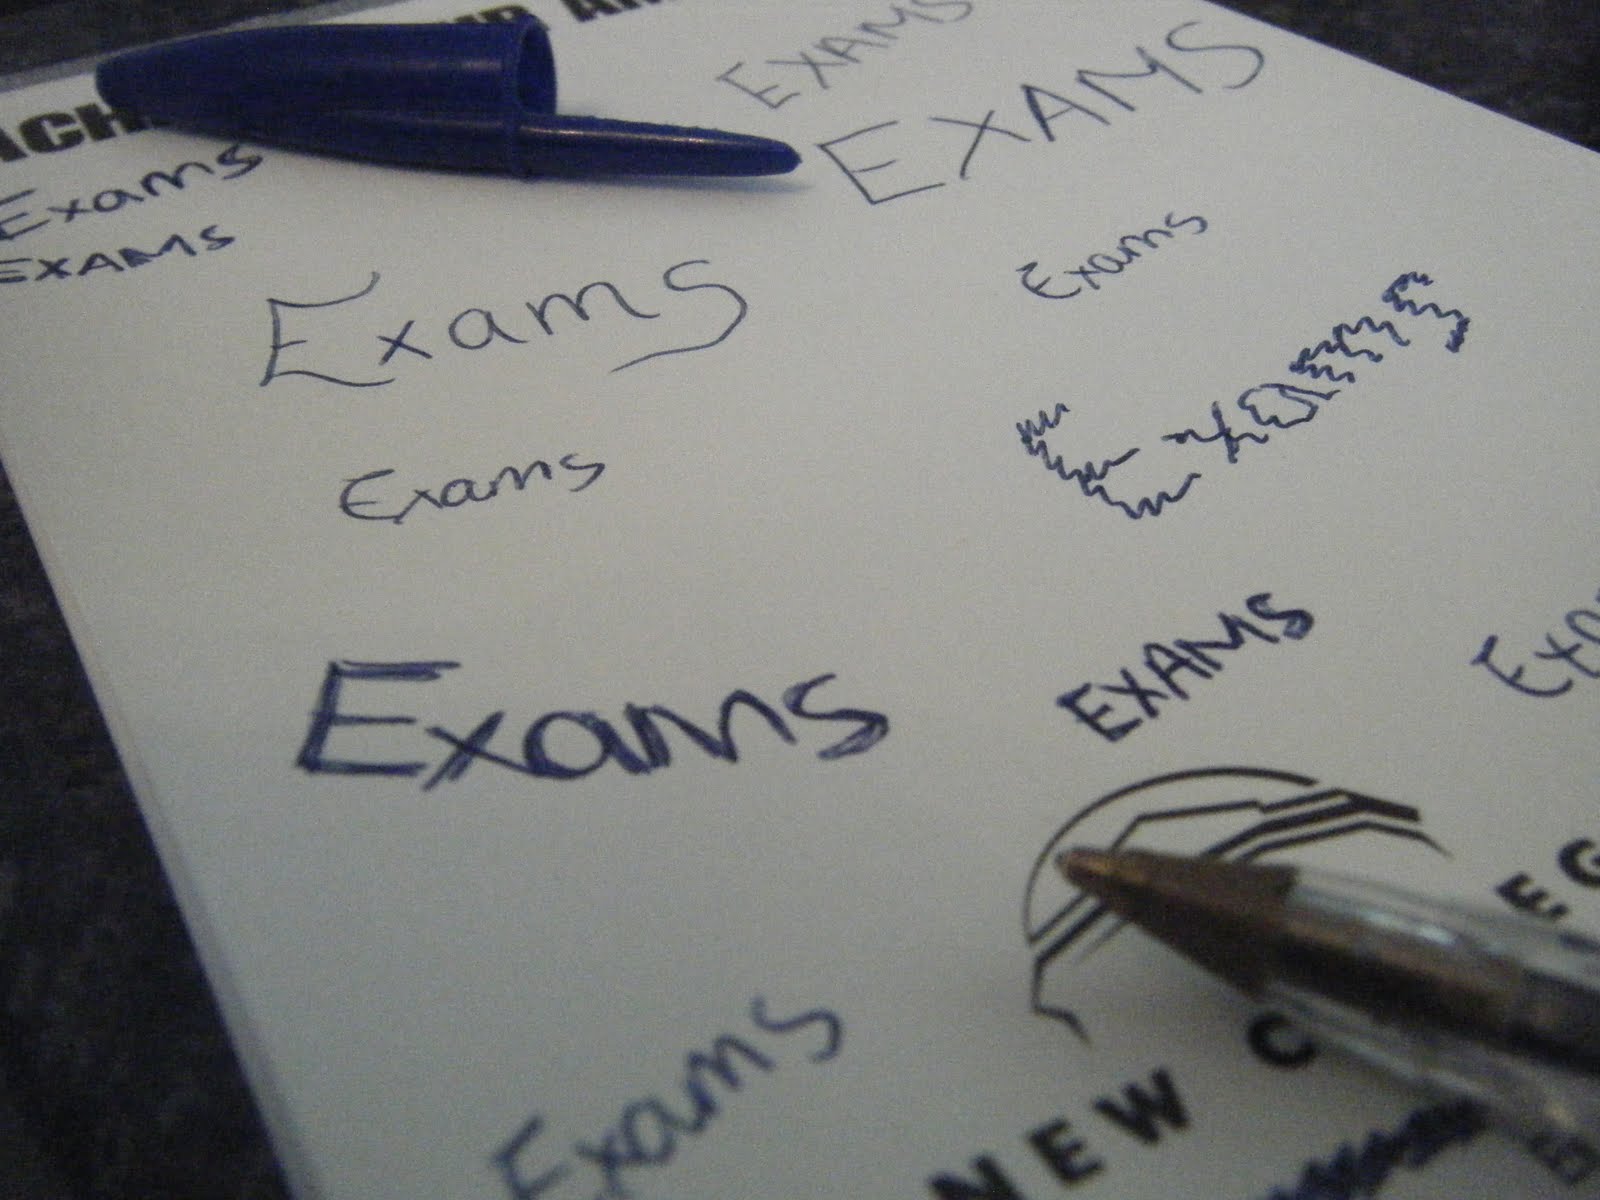 EXAMS
EXAMS
Exams
EXAMS
Exams
Exams
Exams
Exams
EXAMS
Exams
Exams
NEW